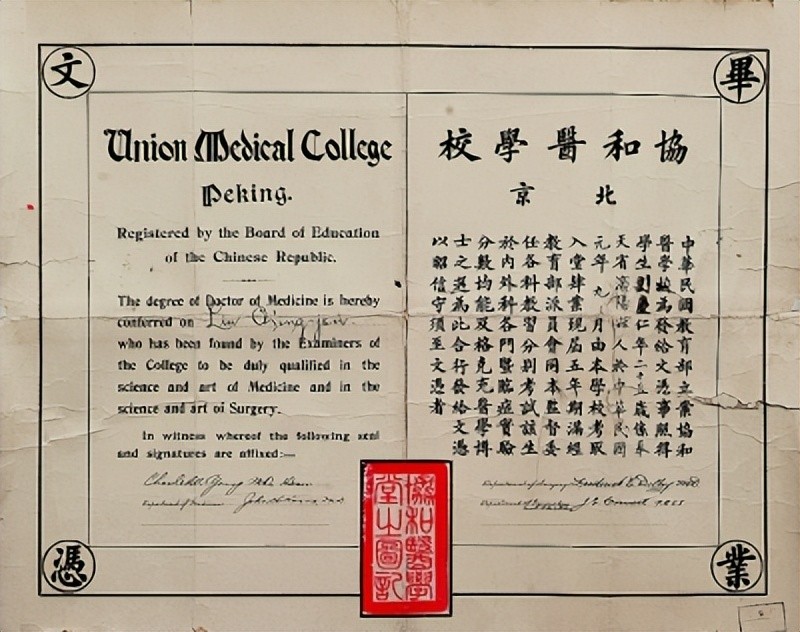 文
畢
Union Medical College
Peking.
Registered by the Board of Education
of the Chinese Republic.
The degree of Doctor of Medicine is hereby
conferred on Liu Ching jen.
who has been found by the Examiners of
the College to be duly qualified in the
science and art of Medicine and in the
science and art of Surgery.
In witness whereof the following seal
and signatures are affixed:—
協和醫學校
北京
中華民國教育部立案協和
醫學校為發給文憑事照得
學生劉慶仁年二十五歲係奉
天省瀋陽縣人於中華民國
元年九月由本學校考取
入堂肄業現屆五年期滿經
教育部派員會同本監督委
任各科教習分別考試該生
於內外科各門暨臨症實驗
分數均能及格克充醫學博
士之選為此合行發給文憑
以昭信守須至文憑者
協和醫學
堂之圖記
憑
業